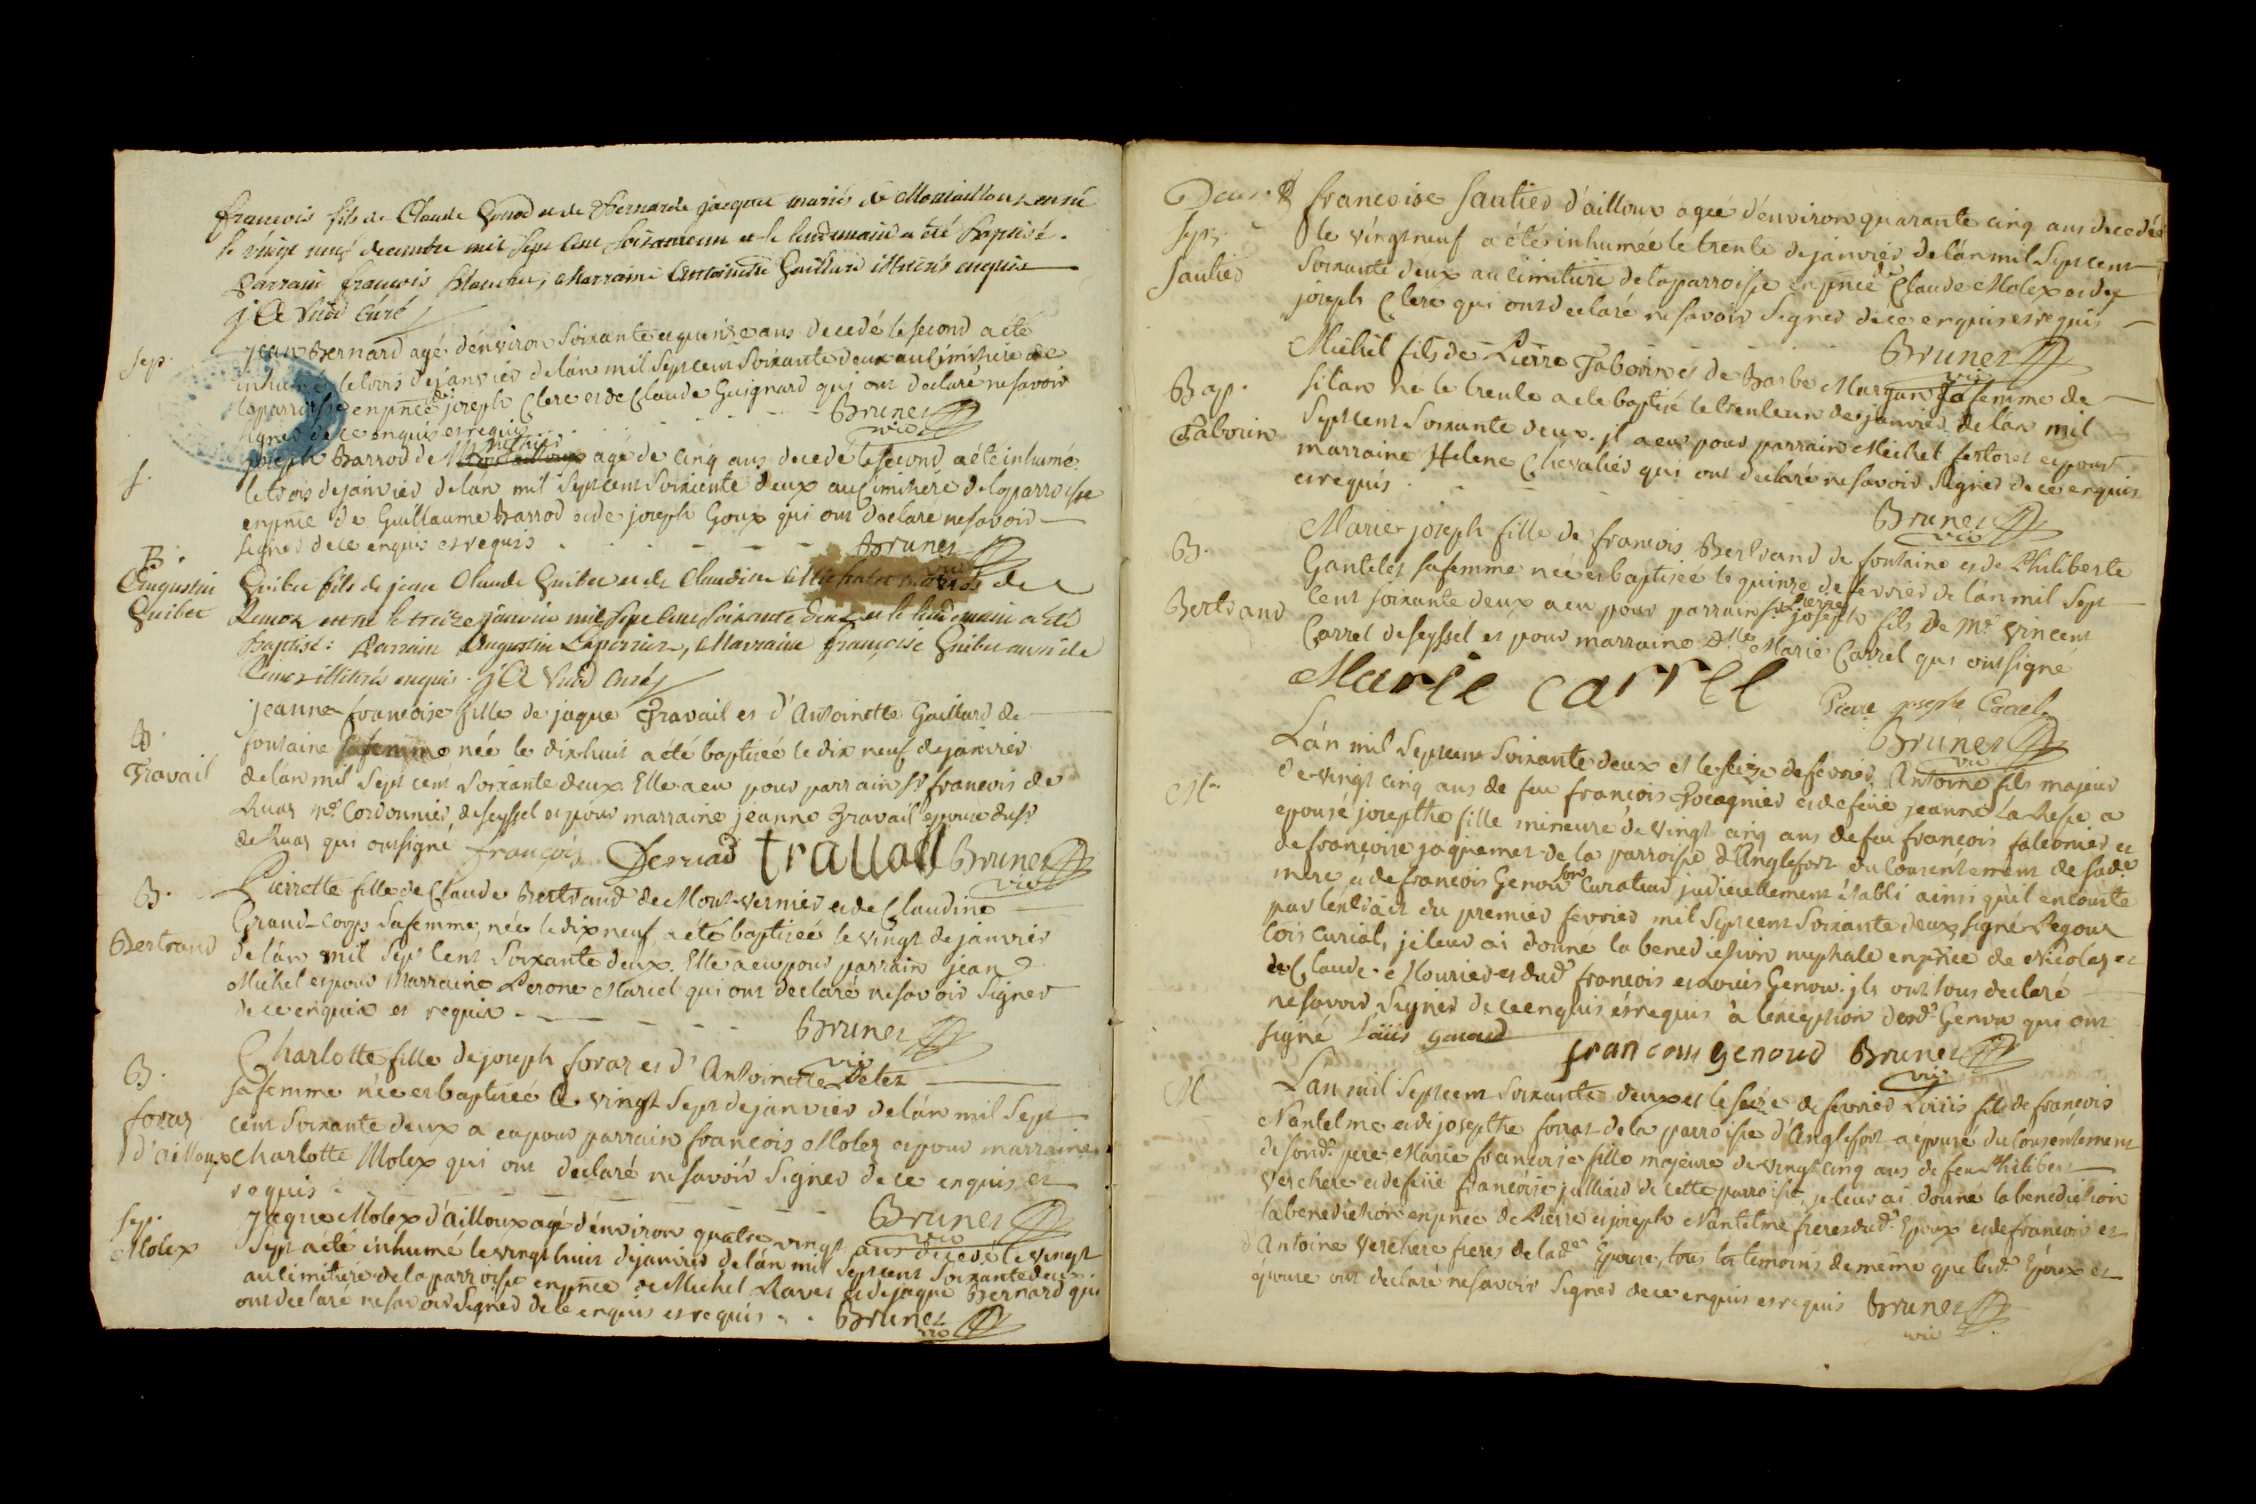 françois fils de Claude Genod et de Bernarde jacquet mariés de Montaillou est né
le vingt neuf decembre mil sept cent soixante un et le lendemain a été Baptisé.
Parrain françois Blanchet, Marraine Antoinette Gaillard illiterés enquis
curé
Sep.
jean Bernard agé d'environ soixante et quinze ans decedé le second a été
inhumé le trois de janvier de lan mil sept cent soixante deux au cimitiere de
la parroisse en pnce de joseph Clerc et de Claude Guignard qui ont declaré ne savoir
signer de ce enquis et requis
Brunet
vic
S.
joseph Barrod de agé de cinq ans decedé le second a été inhumé
le trois de janvier de lan mil sept cent soixante deux au cimitiere de la parroisse
en pnce de Guillaume Barrod et de joseph Goux qui ont declaré ne savoir
signer de ce enquis et requis
Brunet
vic
B.
Augustin
Quibet
Quibet fils de jean Claude Quibet et de Claudine mariés de
est né le treize janvier mil sept cent soixante deux et le lendemain a été
Baptisé: Parrain Augustin Laperriere, Marraine françoise Quibet aussi de
illiterés enquis. curé
B.
Travail
jeanne françoise fille de jaque Travail et d'Antoinette Gaillard de
fontaine sa femme née le dix huit a été baptisée le dix neuf de janvier
de lan mil sept cent soixante deux. Elle a eu pour parrain sr francois de
Ruaz md Cordonnier de seyssel et pour marraine jeanne Travail epouse dusr
de Ruaz qui ont signé françois Derruad travail Brunet
vic
B.
Bertrand
Pierrette fille de Claude Bertrand de Mont-vernier et de Claudine
Grand-Corps sa femme, née le dix neuf a été baptisée le vingt de janvier
de lan mil sept cent soixante deux. Elle a eu pour parrain jean
Michel et pour Marraine Perone Mariel qui ont declaré ne savoir signer
de ce enquis et requis
Brunet
vic
B.
foraz
d'ailloux
Charlotte fille de joseph foraz et d'Antoinette
sa femme née et baptisée le vingt sept de janvier de lan mil sept
cent soixante deux a eu pour parrain francois Molex et pour marraine
Charlotte Molex qui ont declaré ne savoir signer de ce enquis et
requis
Brunet
vic
Sep.
Molex
jaque Molex d'ailloux agé d'environ quatre vingt ans decedé le vingt
sept a été inhumé le vingt huit de janvier de lan mil sept cent soixante deux
au cimitiere de la parroisse en pnce de Michel Ravet et de jaque Bernard qui
ont declaré ne savoir signer de ce enquis et requis
Brunet
vic
Sep.
Sautier
francoise Sautier d'ailloux agée d'environ quarante cinq ans decedée
le vingt neuf a été inhumée le trente de janvier de lan mil sept cent
soixante deux au cimitiere de la parroisse en pnce de Claude Molex et de
joseph Clerc qui ont declaré ne savoir signer de ce enquis et requis
Brunet
vic
Bap.
Tabouin
Michel fils de Pierre Tabouin et de Barbe sa femme de
sitan né le trente a ete baptisé le trente un de janvier de lan mil
sept cent soixante deux. jl a eu pour parrain Michel fertoret et pour
marraine Helene Chevalier qui ont declaré ne savoir signer de ce enquis
et requis
Brunet
vic
B.
Bertrand
Marie joseph fille de francois Bertrand de fontaine et de Philiberte
Gantelet sa femme née et baptisée le quinze de fevrier de lan mil sept
cent soixante deux a eu pour parrain sr Pierre joseph fils de Mr Vincent
Carrel de seyssel et pour marraine dlle Marie Carrel qui ont signé
Marie carrel
Piere joseph Carrel
Brunet
vic
M.
Lan mil sept cent soixante deux et le seize de fevrier Antoine fils majeur
de vingt cinq ans de feu francois et de feüe jeanne a
epousé josephte fille mineure de vingt cinq ans de feu francois falconier et
de françoise jaquemet de la parroisse d'Anglefort du consentement de sade
mere et de francois Genou son Curateur judiciellement établi ainsi quil en conste
par lextrait du premier fevrier mil sept cent soixante deux, signé
curial, je leur ai donné la benediction nuptiale en pnce de Nicolas et
de Claude Mourier et dud françois et Louis Genou. jls ont tous declaré
ne savoir signer de ce enquis et requis à lexception desd Genou qui ont
signé Loüis genoud
francois genoud Brunet
vic
M
Lan mil sept cent soixante deux et le seize de fevrier Loüis fils de francois
Nantelme et de josephte forat de la parroisse d'Anglefort a epousé du consentement
de sond. pere Marie francoise fille majeure de vingt cinq ans de feu Philibert
Verchere et de feüe françoise julliard de cette parroisse, je leur ai donné la benediction
la benediction en pnce de Pierre et joseph Nantelme freres dud. Epoux et de francois et
d'Antoine Verchere freres de lad. Epouse, tous les temoins de même que lesd. Epoux et
epouse ont declaré ne savoir signer de ce enquis et requis
Brunet
vic